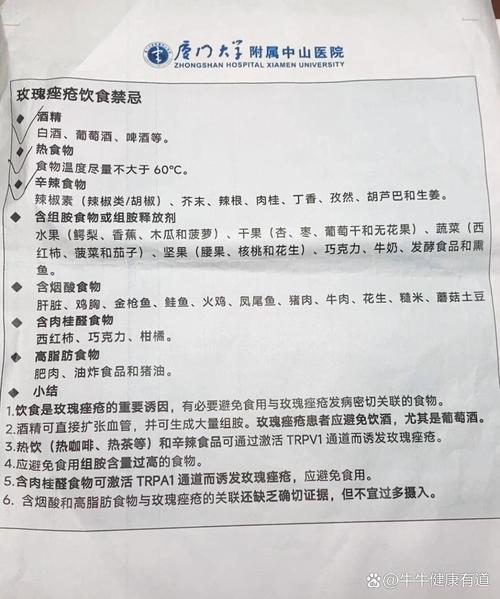 厦门大学附属中山医院
ZHONGSHAN HOSPITAL XIAMEN UNIVERSITY
玫瑰痤疮饮食禁忌
酒精
白酒、葡萄酒、啤酒等。
热食物
食物温度尽量不大于 60℃。
辛辣食物
辣椒素（辣椒类/胡椒）、芥末、辣根、肉桂、丁香、孜然、胡芦巴和生姜。
含组胺食物或组胺释放剂
水果（鳄梨、香蕉、木瓜和菠萝）、干果（杏、枣、葡萄干和无花果）、蔬菜（西
红柿、菠菜和茄子）、坚果（腰果、核桃和花生）、巧克力、牛奶、发酵食品和熏
鱼。
含烟酸食物
肝脏、鸡胸、金枪鱼、鲑鱼、火鸡、凤尾鱼、猪肉、牛肉、花生、糙米、蘑菇土豆
含肉桂醛食物
西红柿、巧克力、柑橘。
高脂肪食物
肥肉、油炸食品和猪油。
小结
1.饮食是玫瑰痤疮的重要诱因，有必要避免食用与玫瑰痤疮发病密切关联的食物。
2.酒精可直接扩张血管，并可生成大量组胺。玫瑰痤疮患者应避免饮酒，尤其是葡萄酒。
3.热饮（热咖啡、热茶等）和辛辣食品可通过激活 TRPV1 通道而诱发玫瑰痤疮。
4.应避免食用组胺含量过高的食物。
5.含肉桂醛食物可激活 TRPA1 通道而诱发玫瑰痤疮，应避免食用。
6. 含烟酸和高脂肪食物与玫瑰痤疮的关联还缺乏确切证据，但不宜过多摄入。
牛牛健康有道